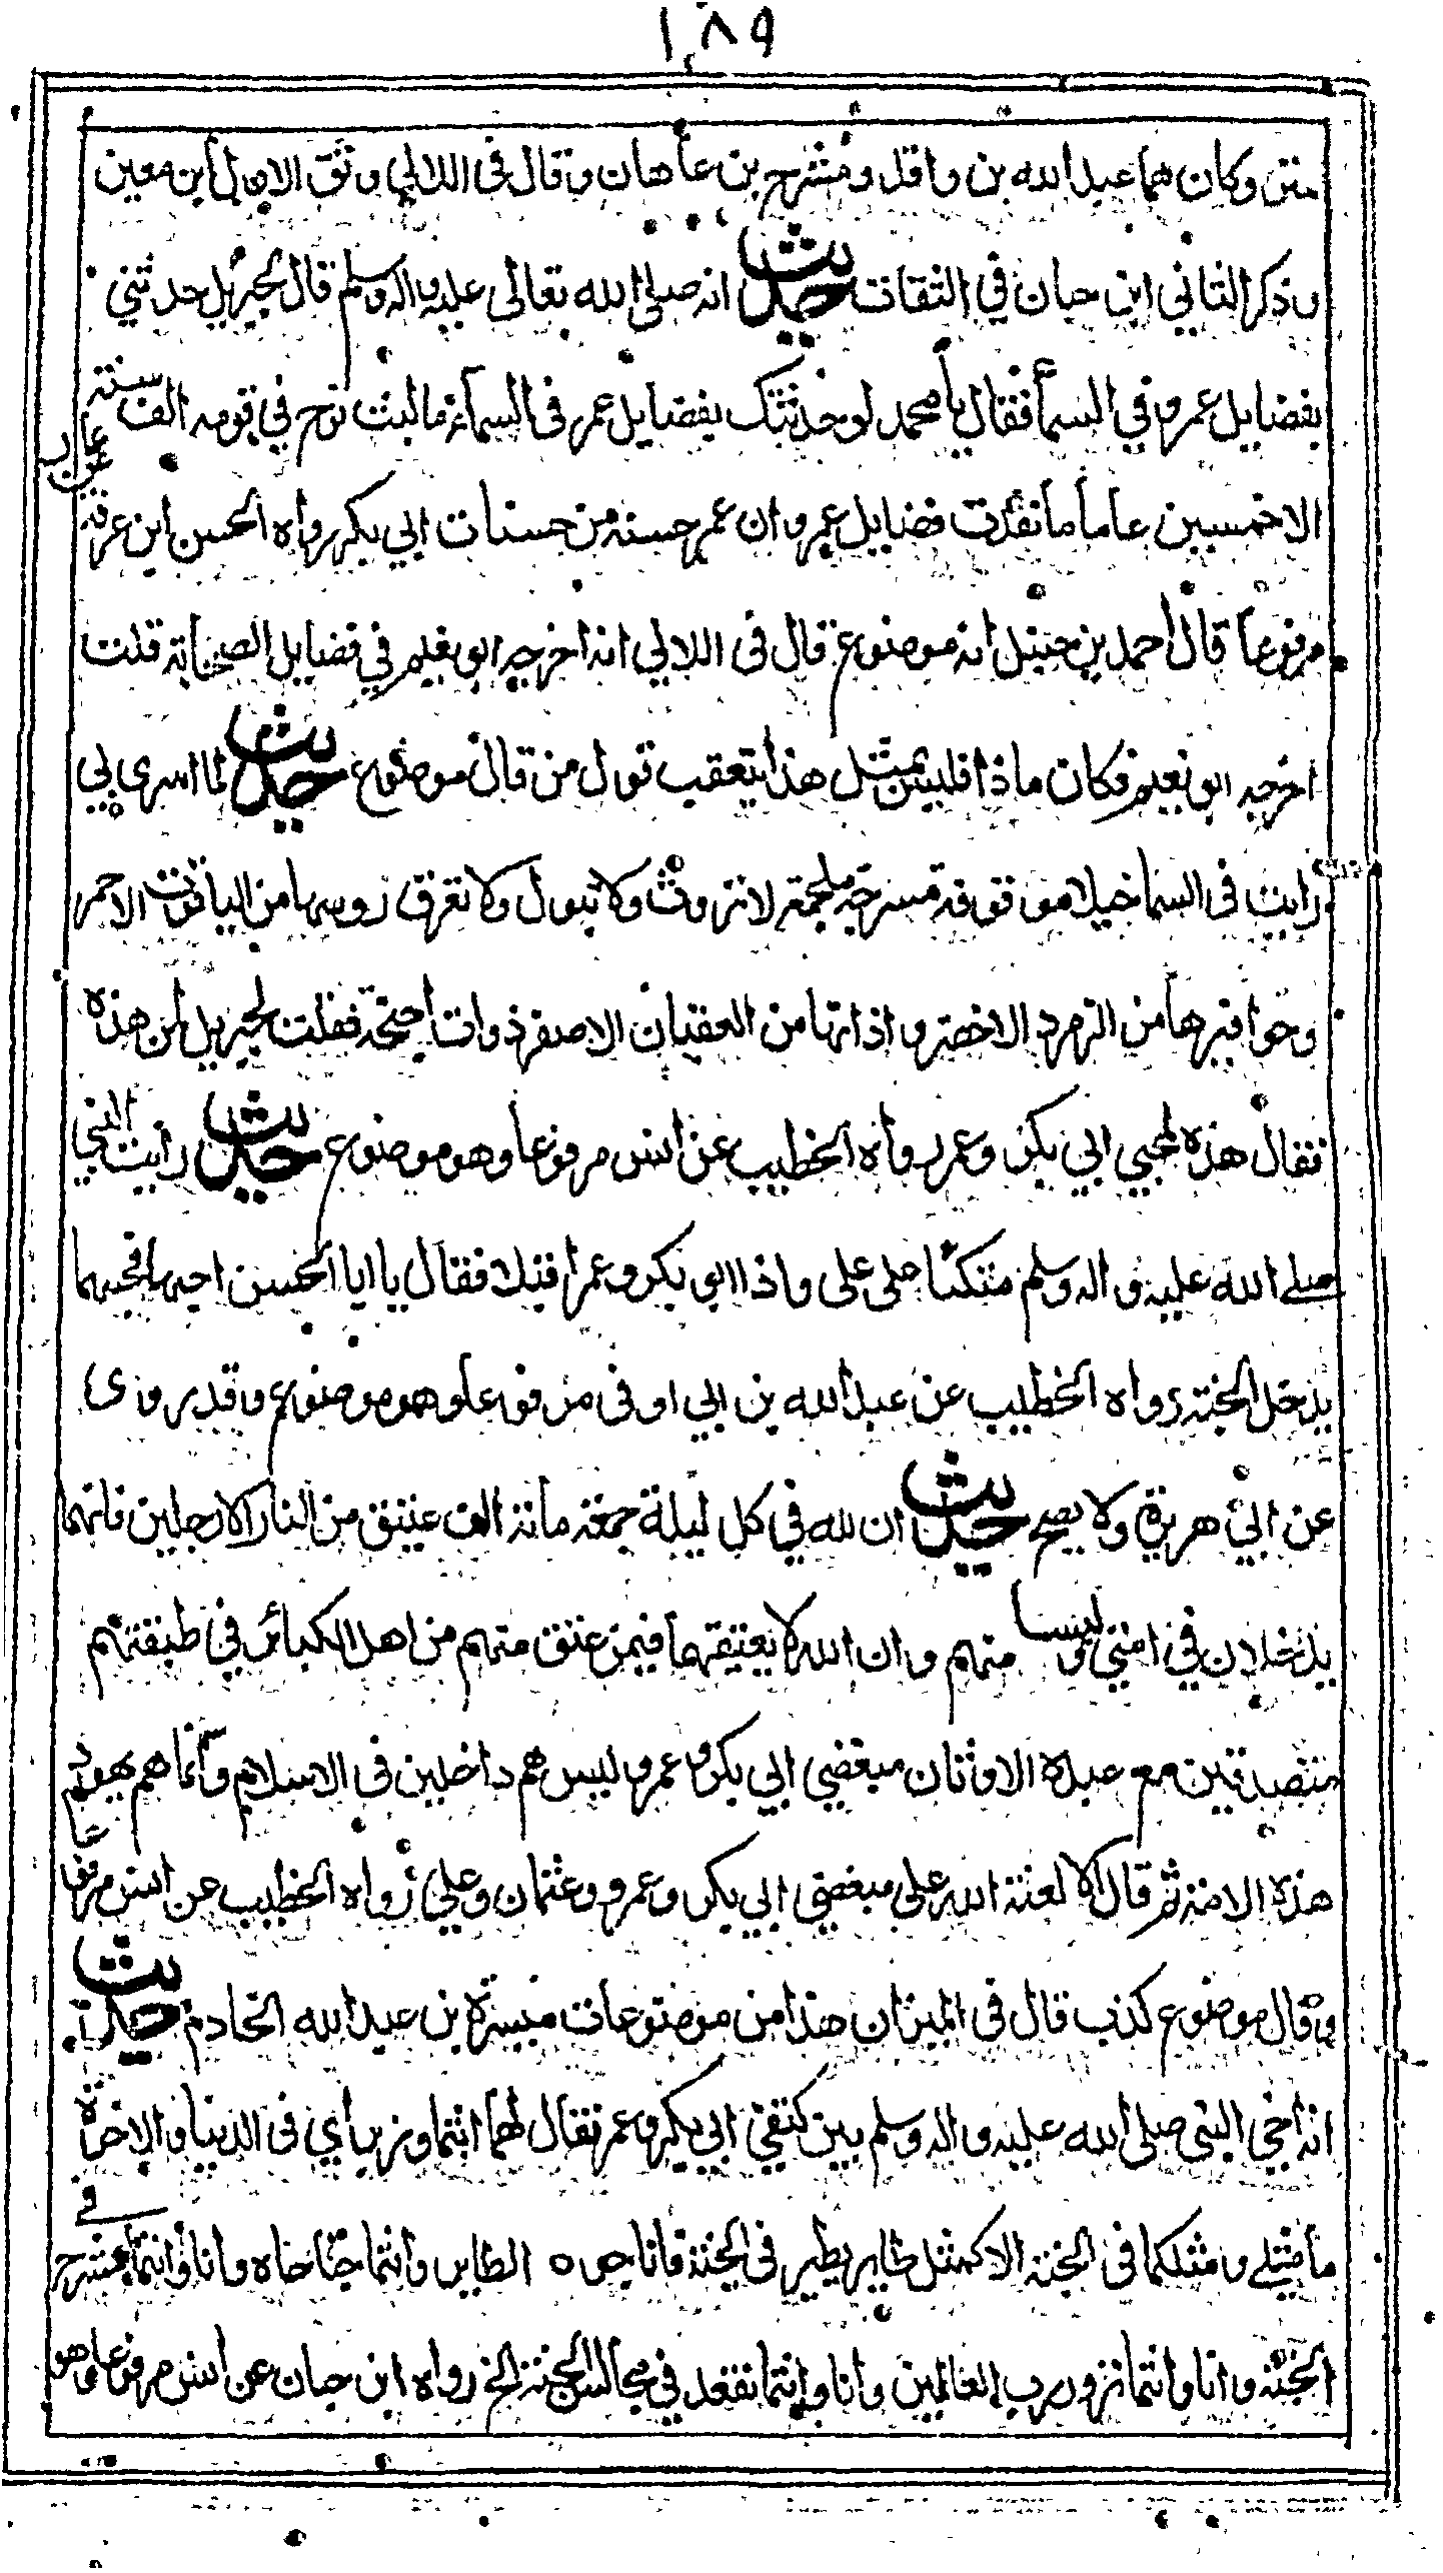 ١٨٩
متن وكان هما عبد الله بن واقد ومشرح بن عاهان وقال في اللالي وثق الاول ابن معين
وذكر الثاني ابن حبان في الثقات حديث انه صلى الله تعالى عليه واله وسلم قال لجبريل حدثني
بفضايل عمر في السماء فقال يا محمد لو حدثتك بفضايل عمر في السماء ما لبث نوح في قومه الف سنة
الا خمسين عاما ما نفدت فضايل عمر وان عمر حسنة من حسنات ابي بكر رواه الحسن ابن عرفة عن عمار
مرفوعا قال احمد بن حنبل انه موضوع قال في اللالي انه اخرجه ابو نعيم في فضايل الصحابة قلت
اخرجه ابو نعيم فكان ماذا فليس بمثل هذا يتعقب قول من قال موضوع حديث لما اسرى بي
رايت في السما خيلا موقوفة مسرجة ملجمة لا تروث ولا تبول ولا تعرق روسها من الياقوت الاحمر
وحوافيرها من الزمرد الاخضر واذانها من العقيان الاصفر ذوات اجنحة فقلت لجبريل لمن هذه
فقال هذه لمحبي ابي بكر وعمر رواه الخطيب عن انس مرفوعا وهو موضوع حديث رايت النبي
صلى الله عليه واله وسلم متكئا على علي واذا ابو بكر وعمر اقبلا فقال يا ابا الحسن احبهما فبحبهما
يدخل الجنة رواه الخطيب عن عبد الله بن ابي اوفى مرفوعا وهو موضوع وقد روى
عن ابي هريرة ولا يصح حديث ان لله في كل ليلة جمعة مائة الف عتيق من النار الا رجلين فانهما
يدخلان في امتي وليسا منهم وان الله لا يعتقهما فيمن عتق منهم من اهل الكبائر في طبقتهم
متصدقين مع عبدة الاوثان مبغضي ابي بكر وعمر وليس هم داخلين في الاسلام وانما هم يهود
هذه الامة ثم قال الا لعنة الله على مبغضي ابي بكر وعمر وعثمان وعلي رواه الخطيب عن انس مرفوعا
وقال موضوع كذب قال في الميزان هذا من موضوعات ميسرة بن عبد الله الخادم حديث
انه اخى النبي صلى الله عليه واله وسلم بين كتفي ابي بكر وعمر فقال لهما انتما وزيراي في الدنيا والاخرة
ما مثلي ومثلكما في الجنة الا كمثل طاير يطير في الجنة فانا جوجوه الطاير وانتما جناحاه وانا وانتما نسرح في
الجنة وانا وانتما نزور رب العالمين وانا وانتما نقعد في مجالس الجنة الخ رواه ابن حبان عن انس مرفوعا وهو